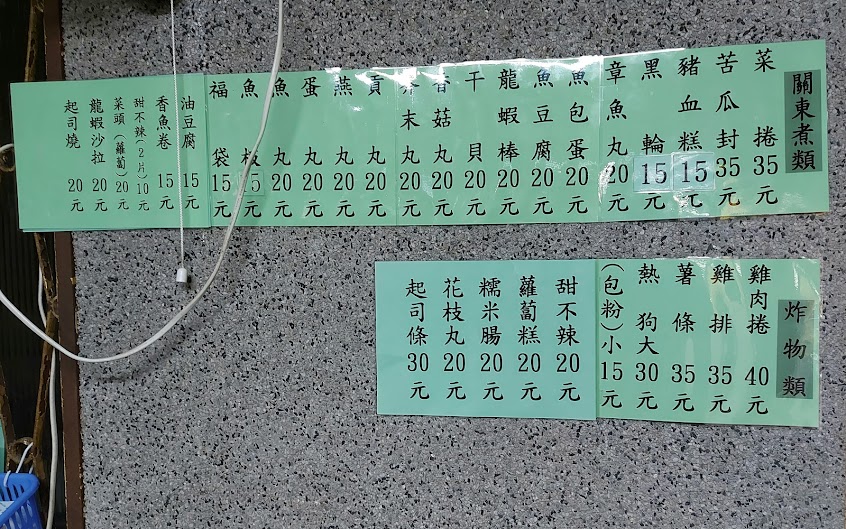 關東煮類
菜捲35元
苦瓜封35元
豬血糕15元
黑輪15元
章魚丸20元
魚包蛋20元
魚豆腐20元
龍蝦棒20元
干貝20元
香菇丸20元
末丸20元
貢丸20元
燕丸20元
蛋丸20元
魚丸20元
魚板5元
福袋15元
油豆腐15元
香魚卷15元
甜不辣(2片)10元
菜頭(蘿蔔)20元
龍蝦沙拉20元
起司燒20元
炸物類
雞肉捲40元
雞排35元
薯條35元
熱狗大30元
(包粉)小15元
甜不辣20元
蘿蔔糕20元
糯米腸20元
花枝丸20元
起司條30元